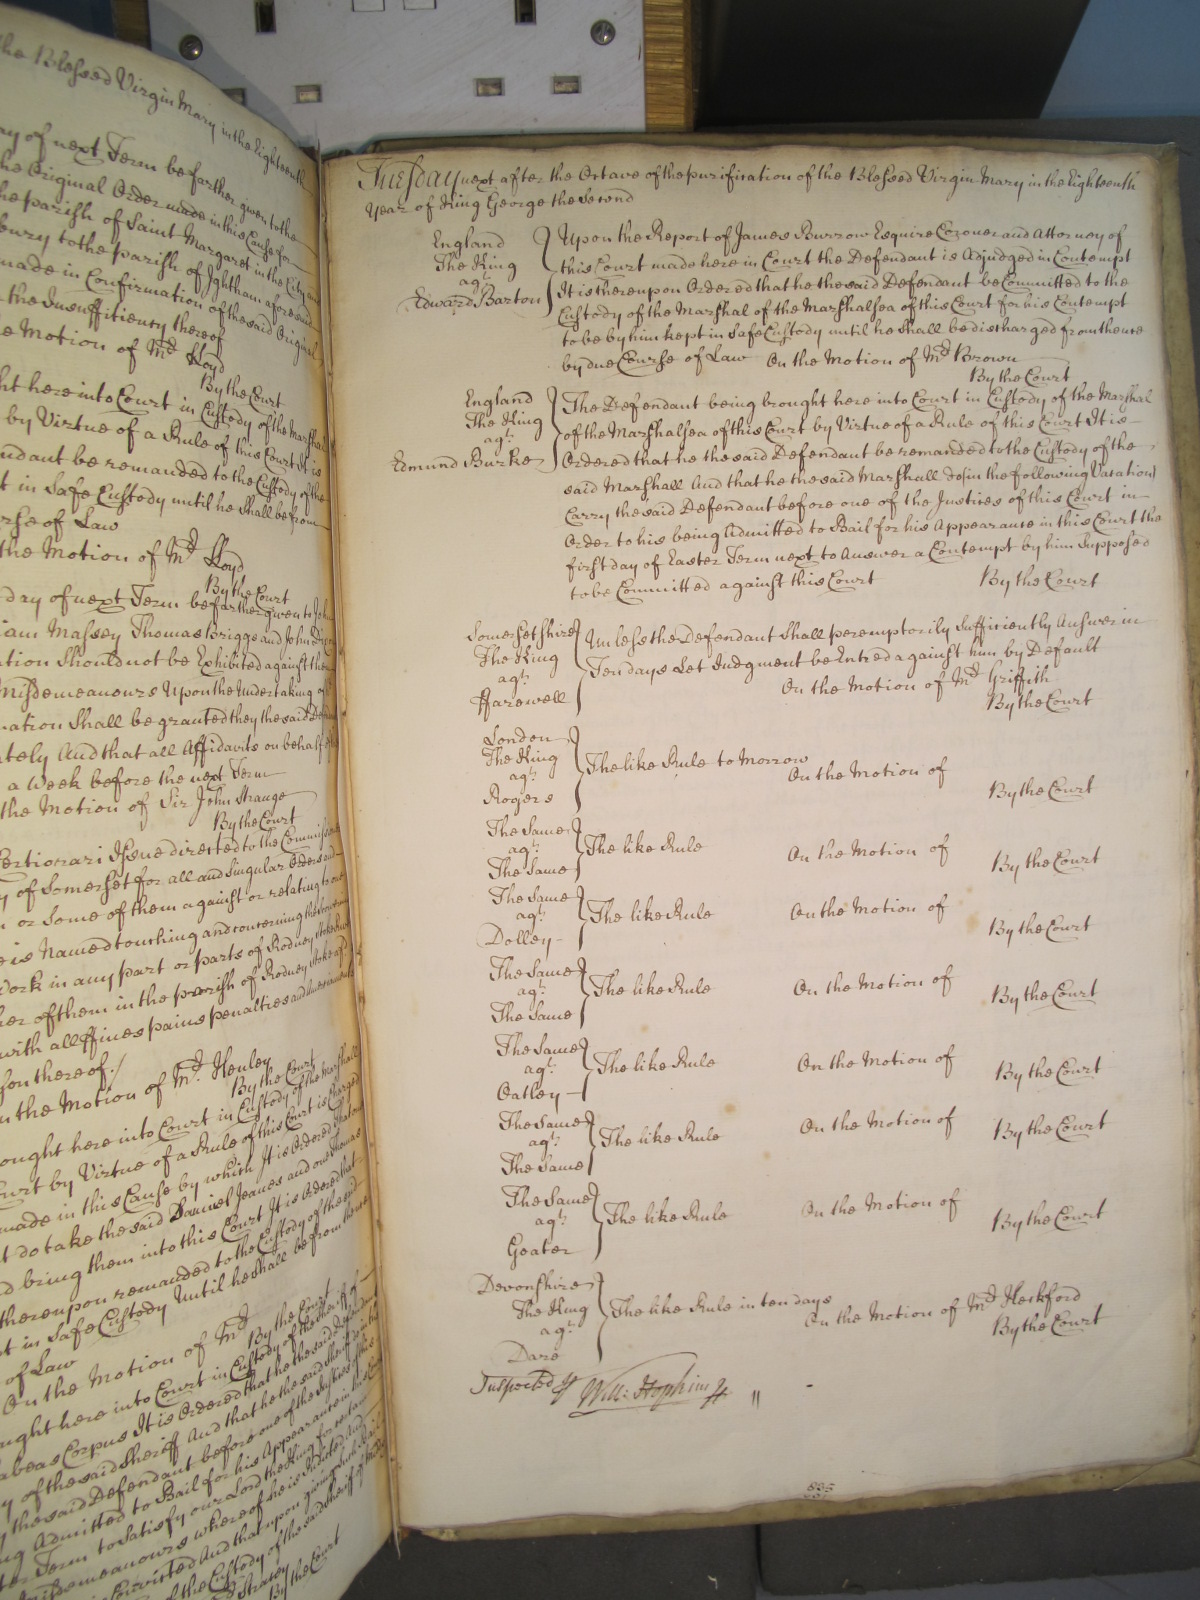 the Blessed Virgin Mary in the Eighteenth
day of next Term be farther given to the
the Original Order made in this Cause for
the parish of Saint Margaret in the City and
bury to the parish of Ightham aforesaid
made in Confirmation of the said Original
the Insufficiency thereof
the Motion of Mr. Lloyd
By the Court
ht here into Court in Custody of the Marshal
by Virtue of a Rule of this Court It is
ndant be remanded to the Custody of the
t in Safe Custody until he shall be from
rse of Law
the Motion of Mr. Lloyd
By the Court
day of next Term be farther given to John
iam Massey Thomas Briggs and John
ation should not be Exhibited against them
Misdemeanours Upon the Undertaking of
mation shall be granted they the said
ately And that all Affidavits on behalf
a Week before the next Term
the Motion of Sir John Strange
By the Court
Certiorari Issue directed to the
y of Somerset for all and Singular Orders and
or Some of them against or relating to
is Named touching and concerning the
Work in any part or parts of Rodney Stoke
her of them in the parish of Rodney Stoke
with all ffines pains penalties and
thereof
n the Motion of Mr. Henley
By the Court
ought here into Court in Custody of the Marshall
ourt by Virtue of a Rule of this Court is Charged
made in this Cause by which It is Ordered that
t do take the said Samuel Jeanes and one Thomas
d bring them into this Court It is Ordered that
thereupon remanded to the Custody of the
t in Safe Custody Until he shall be from thence
of Law
On the Motion of Mr.
By the Court
ught here into Court in Custody of the Sheriff of
abeas Corpus It is Ordered that he the said
y of the said Sheriff And that he the said Sheriff do
the said Defendant before one of the Justices of this
ng Admitted to Bail for his Appearance in this Court
ter Term to Satisfy our Lord the King for
Misdemeanours whereof he is Indicted And
Convicted And that upon giving such Bail
of the Custody of the said Sheriff
Stracey
By the Court
Tuesday next after the Octave of the purification of the Blessed Virgin Mary in the Eighteenth
Year of King George the Second
England
The King
agt.
Edward Barton
Upon the Report of James Burrow Esquire Coroner and Attorney of
this Court made here in Court the Defendant is Adjudged in Contempt
It is thereupon Ordered that he the said Defendant be Committed to the
Custody of the Marshal of the Marshalsea of this Court for his Contempt
to be by him kept in Safe Custody until he shall be discharged from thence
by due Course of Law On the Motion of Mr. Brown
By the Court
England
The King
agt.
Edmund Burke
The Defendant being brought here into Court in Custody of the Marshal
of the Marshalsea of this Court by Virtue of a Rule of this Court It is
Ordered that he the said Defendant be remanded to the Custody of the
said Marshall And that he the said Marshall do (in the following Vacation)
Carry the said Defendant before one of the Justices of this Court in
Order to his being Admitted to Bail for his Appearance in this Court the
first day of Easter Term next to Answer a Contempt by him Supposed
to be Committed against this Court By the Court
Somersetshire
The King
agt.
Harewell
Unless the Defendant Shall peremptorily Sufficiently Answer in
Ten days Let Judgment be Entred against him by Default
On the Motion of Mr. Griffith
By the Court
London
The King
agt.
Rogers
The like Rule to Morrow
On the Motion of
By the Court
The Same
agt.
The Same
The like Rule On the Motion of
By the Court
The Same
agt.
Dolley
The like Rule On the Motion of
By the Court
The Same
agt.
The Same
The like Rule On the Motion of
By the Court
The Same
agt.
Oatley
The like Rule On the Motion of
By the Court
The Same
agt.
The Same
The like Rule On the Motion of
By the Court
The Same
agt.
Goater
The like Rule On the Motion of
By the Court
Devonshire
The King
agt.
Dare
The like Rule in ten days
On the Motion of Mr. Heckford
By the Court
Inspected by Will: Hopkins